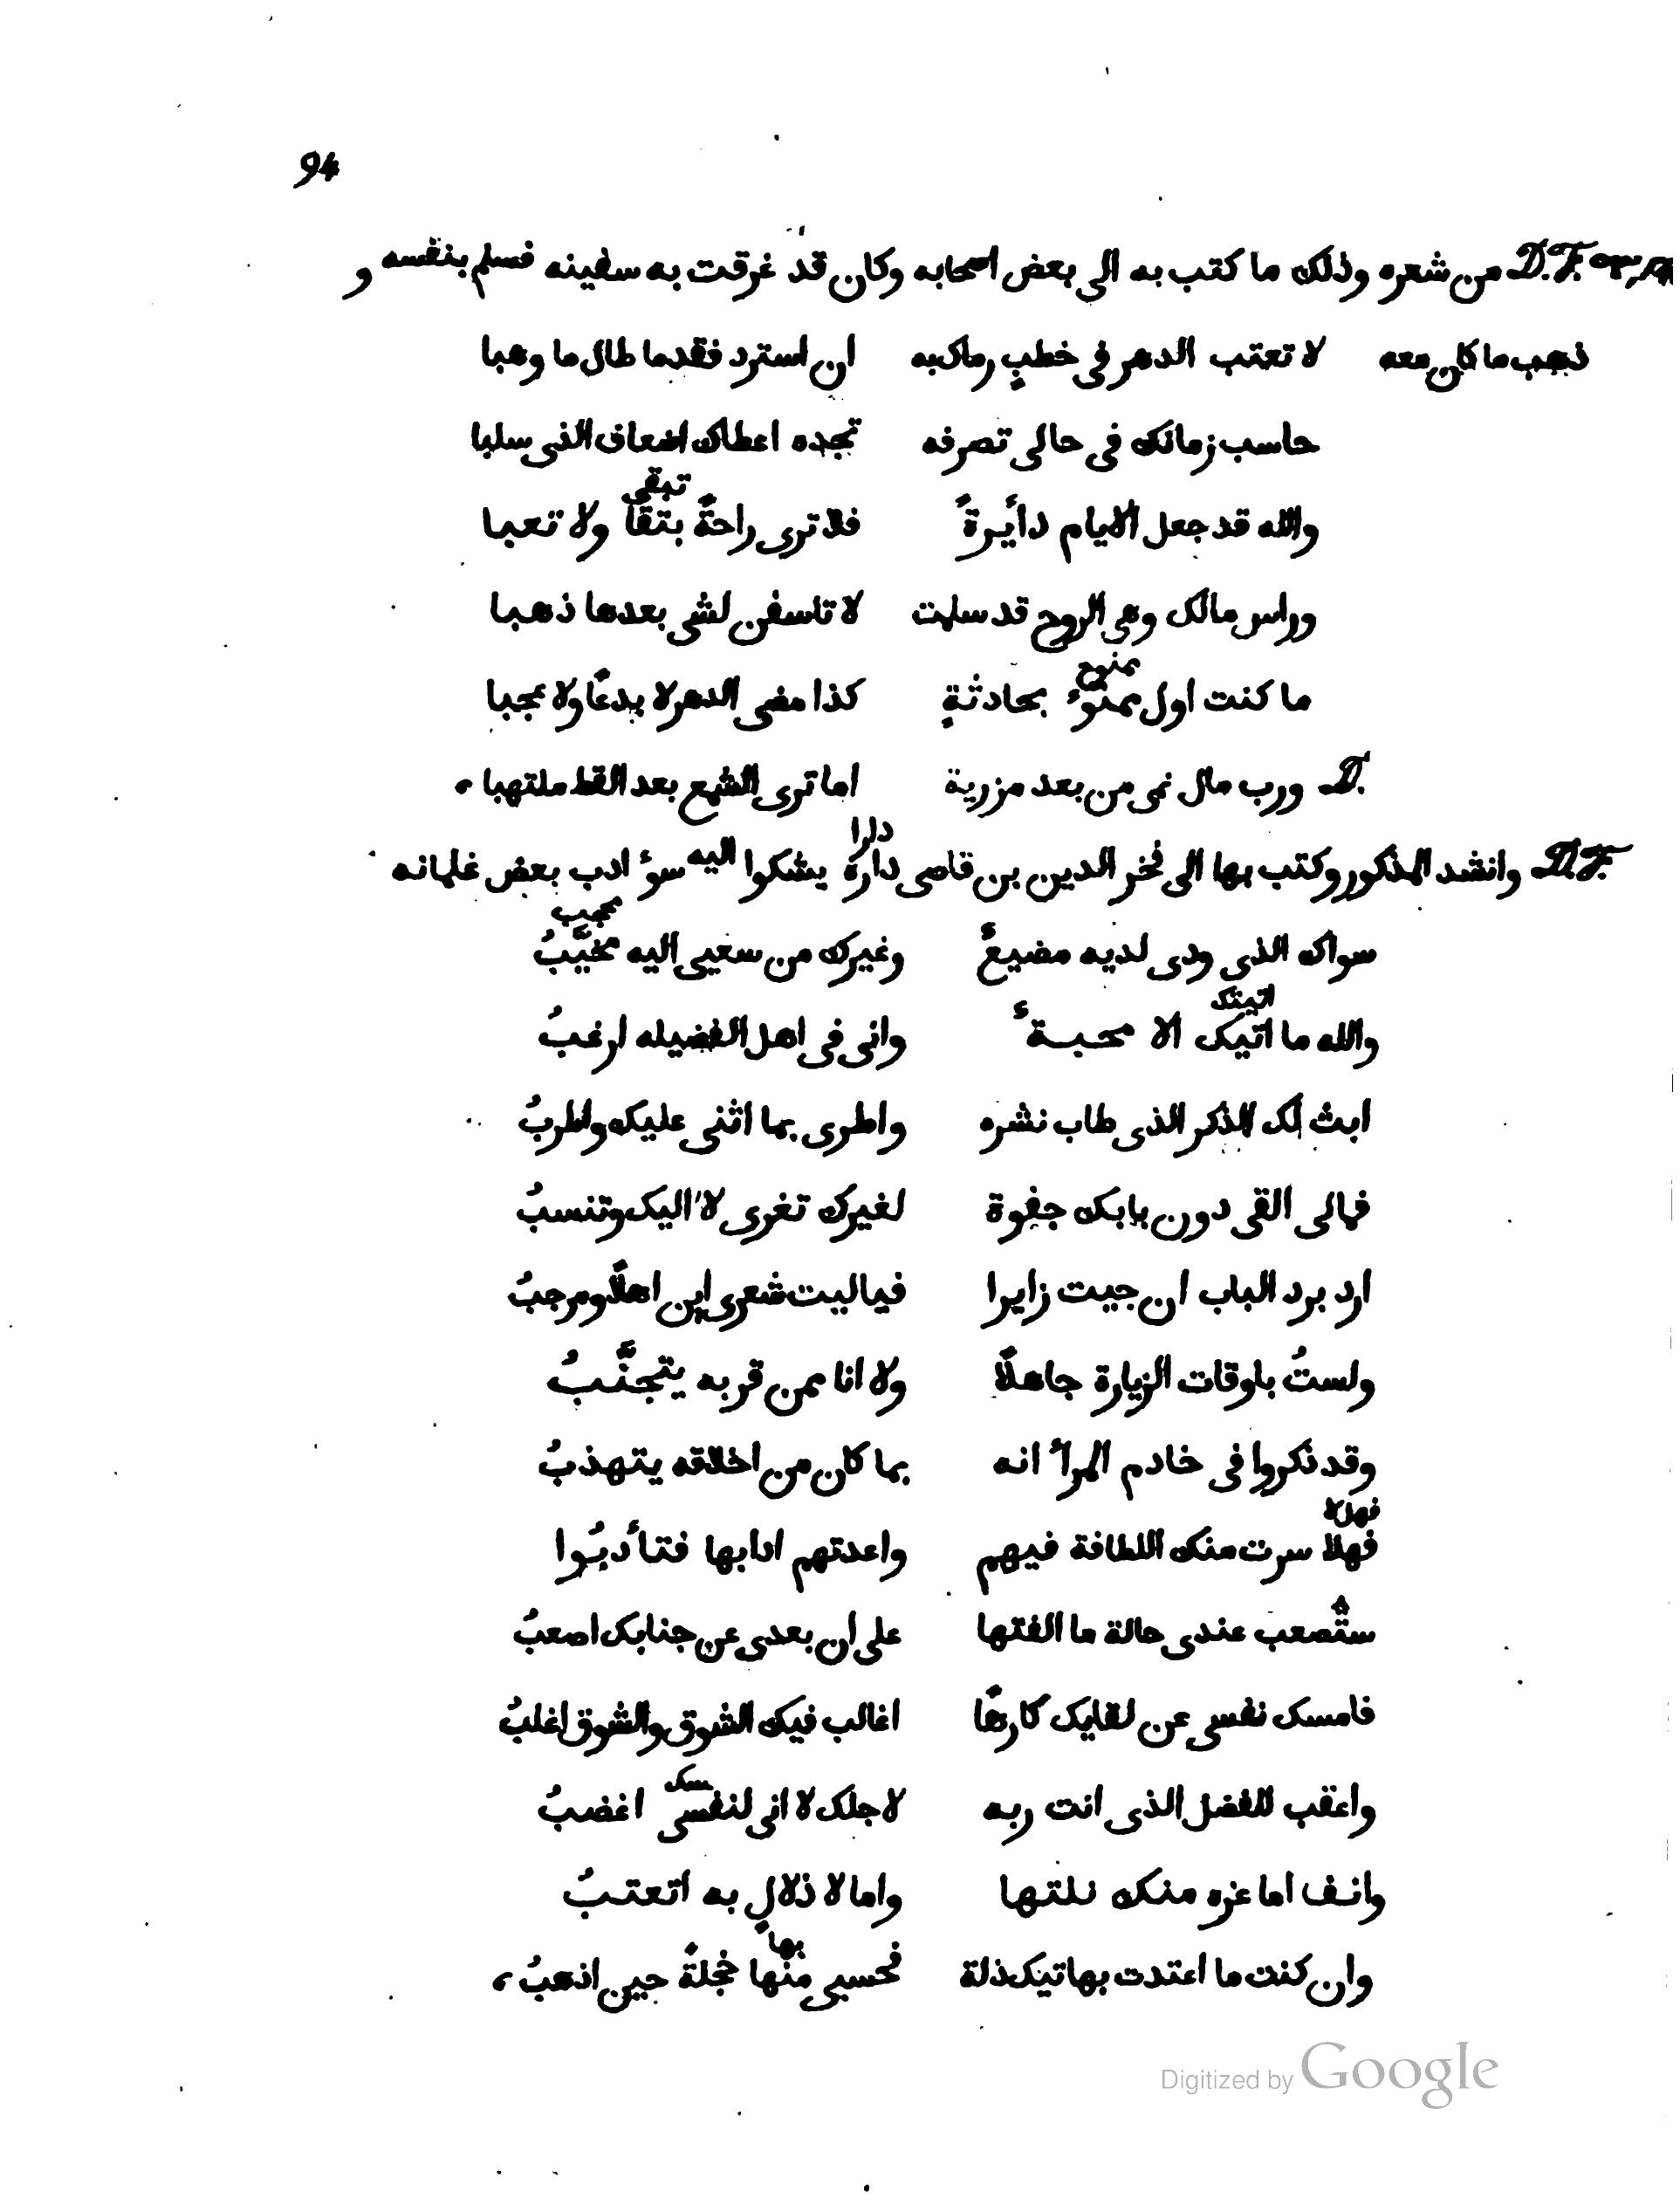 94
D.F. من شعره وذلك ما كتب به الى بعض اصحابه وكان قد غرقت به سفينه فسلم بنفسه و
ذهب ما كان معه لا تعتب الدهر فى خطبٍ رماك به ان استرد فقدما طال ما وهبا
حاسب زمانك فى حالى تصرفه تجده اعطاك اضعاف الذى سلبا
تبقى
والله قد جعل الايام دائرةً فلا ترى راحةً بتقًا ولا تعبا
وراس مالك وهى الروح قد سلمت لا تاسفن لشى بعدها ذهبا
ممنوح
ما كنت اول ممنوء بحادثةٍ كذا مضى الدهر لا بدعًا ولا عجبا
D. ورب مال نمى من بعد مزرية اما ترى الشمع بعد القط ملتهبا
دارا
D.F. وانشد المذكور وكتب بها الى فخر الدين بن قاصى دارة يشكوا اليه سوء ادب بعض غلمانه
محجب
سواك الذى ودى لديه مضيعٌ وغيرك من سعيى اليه مخيَّبُ
اتيتك
والله ما اتيك الا محبةً وانى فى اهل الفضيله ارغبُ
ابث لك الذكر الذى طاب نشره واطرى بما اثنى عليك واطربُ
فمالى القى دون بابك جفوة لغيرك تغرى لا اليك وتنسبُ
ارد برد الباب ان جيت زايرا فياليت شعرى اين اهلًا ومرحبُ
ولستُ باوقات الزيارة جاهلًا ولا انا ممن قربه يتجنَّبُ
وقد ذكروا فى خادم المرأ انه بما كان من اخلاقه يتهذبُ
فهلا
فهلا سرت منك اللطافة فيهم واعدتهم ادابها فتأدبُوا
ستصعب عندى حالة ما الفتها على ان بعدى عن جنابك اصعبُ
فامسك نفسى عن لقايك كارهًا اغالب فيك الشوق والشوق اغلبُ
سك
واعقب للفضل الذى انت ربه لاجلك لا انى لنفسى اغضبُ
وانف اما عزه منك نلتها واما لا ذلالٍ به اتعتبُ
بها
وان كنت ما اعتدت بهاتيك ذلة فحسبى منها خجلةً حين اذهبُ
Digitized by Google